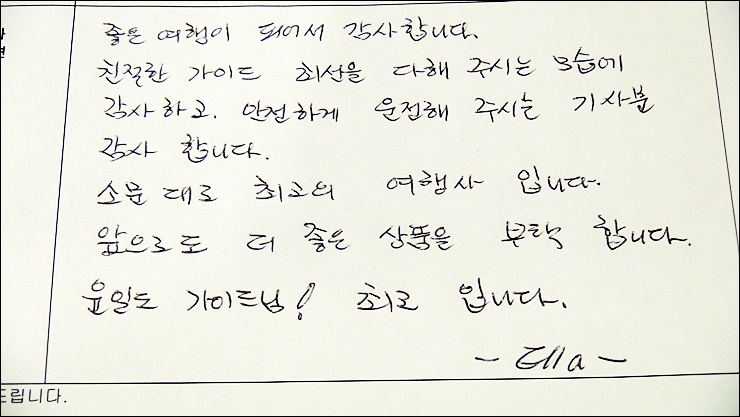 좋은 여행이 되어서 감사합니다.
친절한 가이드 최선을 다해 주시는 모습에
감사하고. 안전하게 운전해 주시는 기사분
감사 합니다.
소문대로 최고의 여행사 입니다.
앞으로도 더 좋은 상품을 부탁 합니다.
윤일도 가이드님! 최고 입니다.
드립니다.